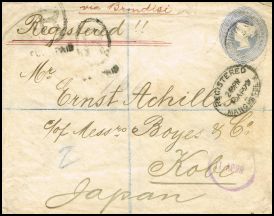 via Brindisi
Registered !!
PAID
Mr
Ernst Achille
c/o Messrs Boyes & Co.
Kobe
Japan
REGISTERED
MANCHESTER